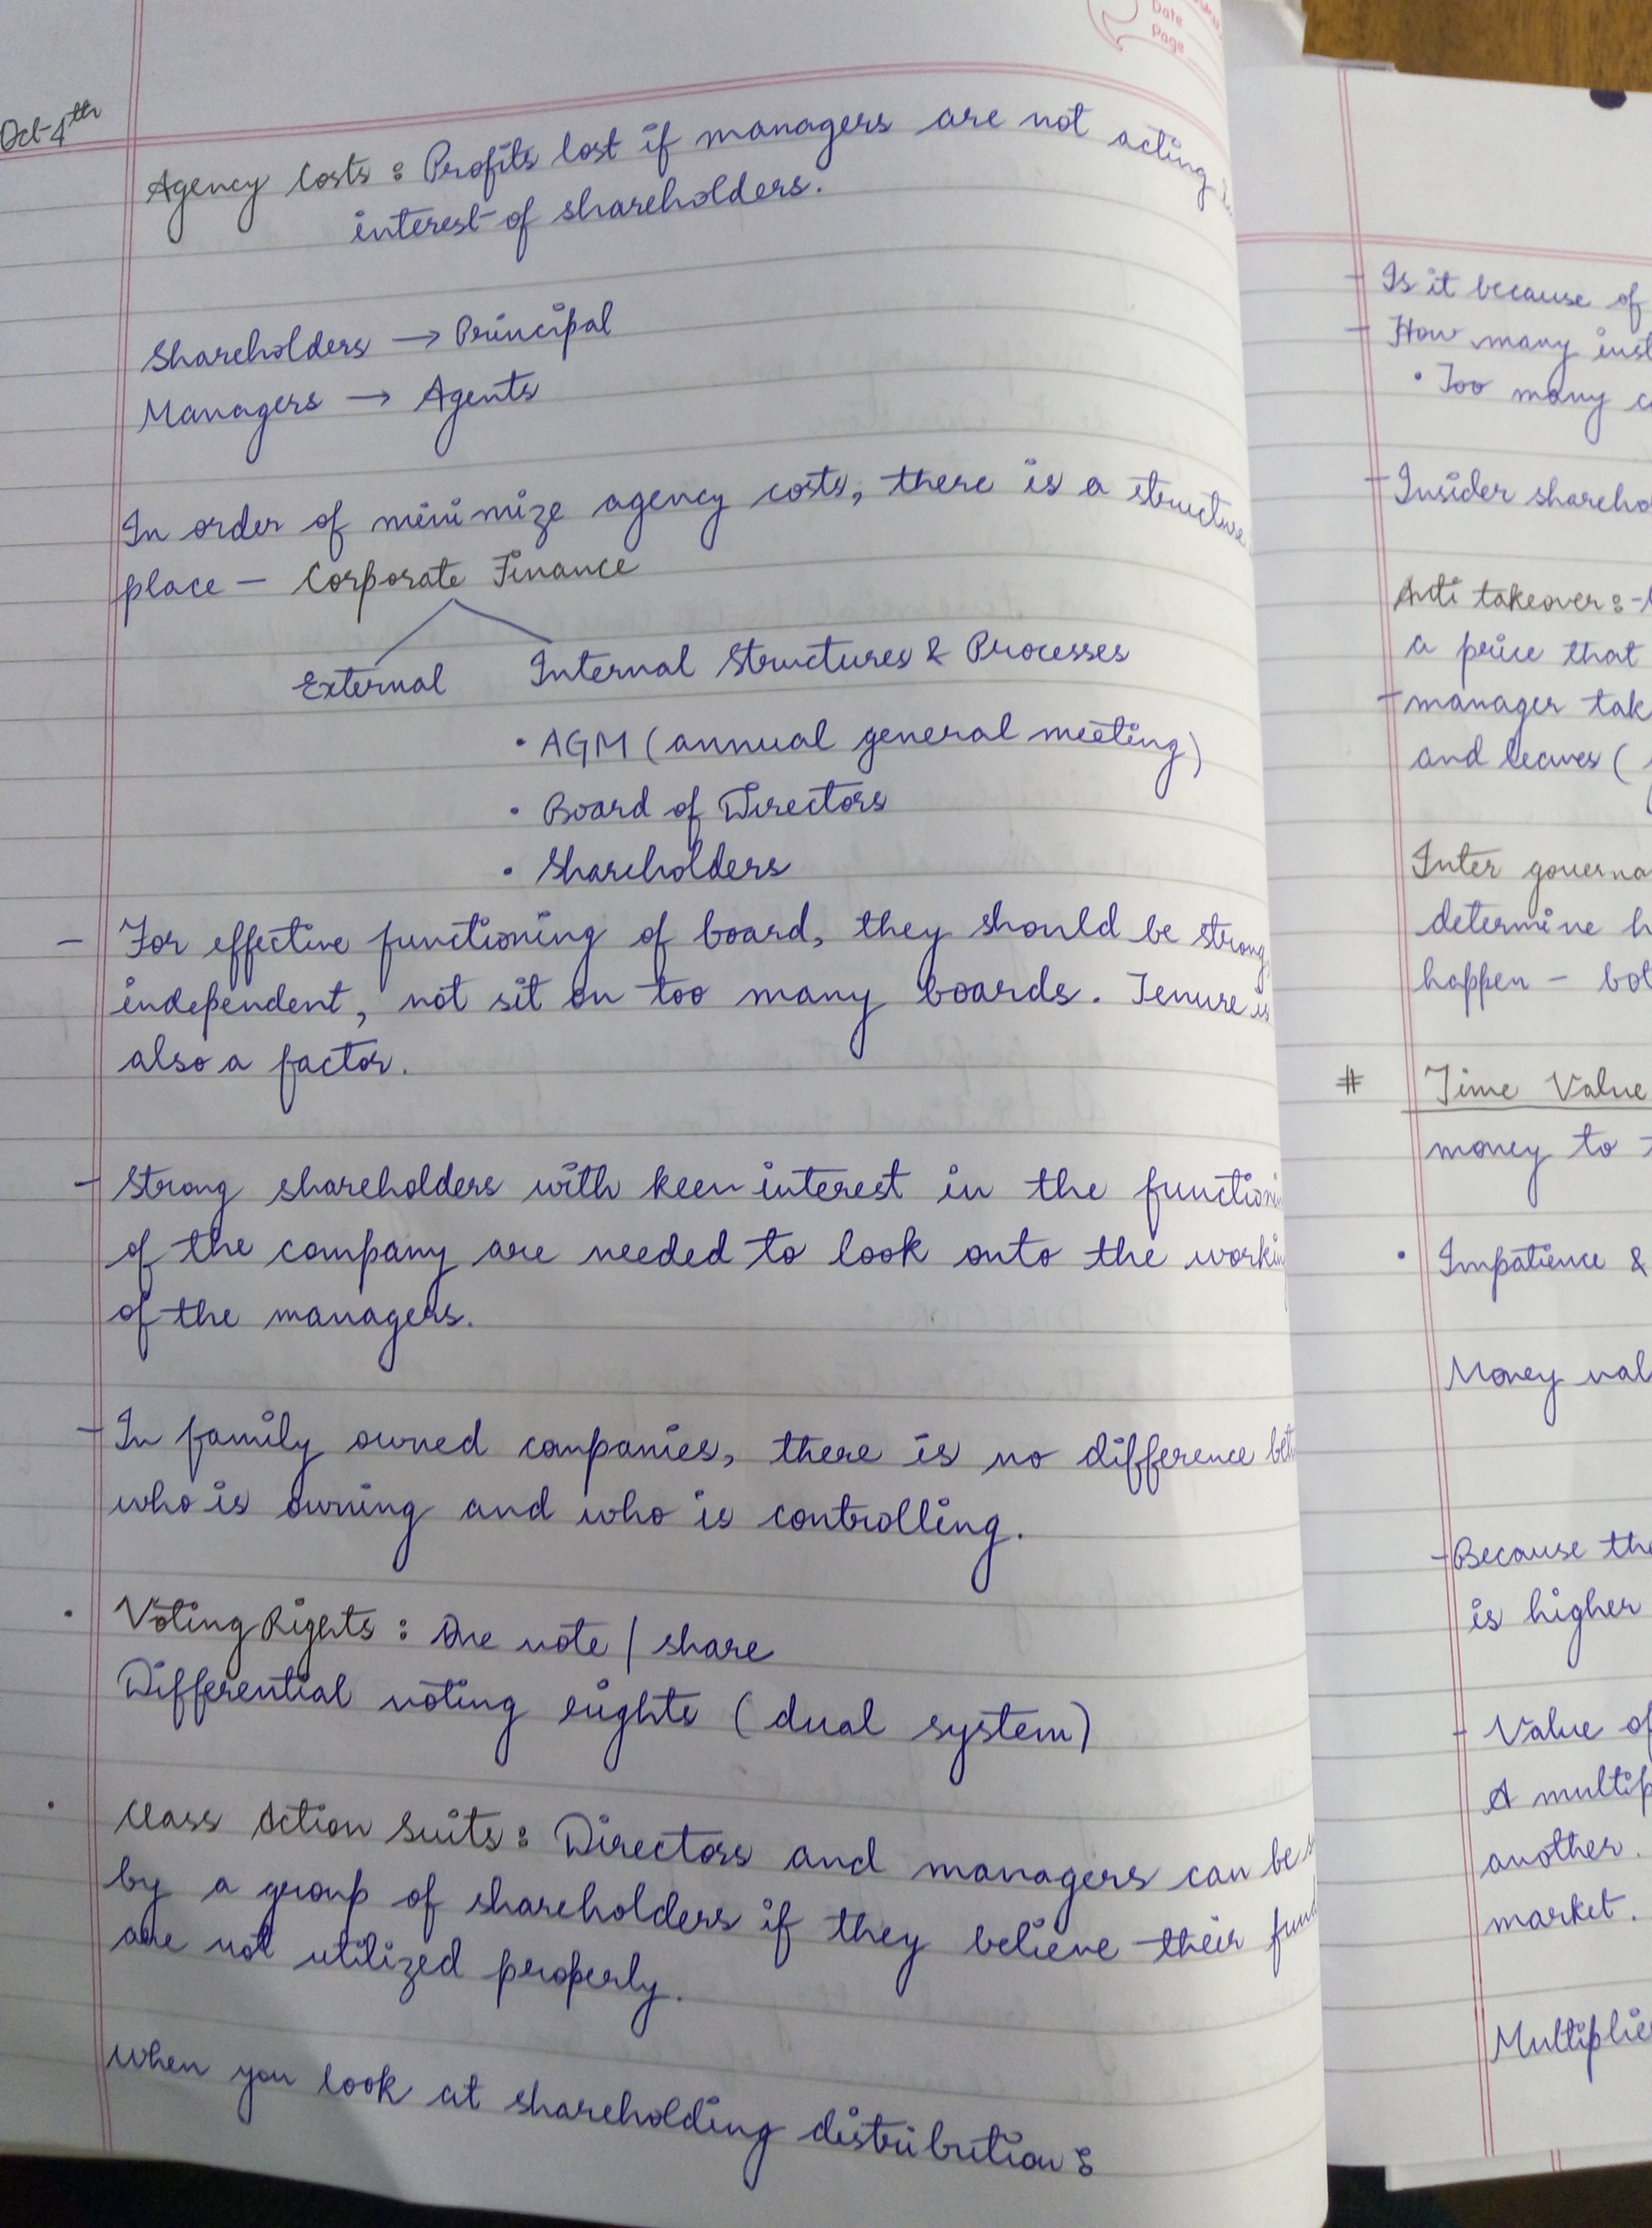 Date
Page
Oct 4th
Agency Costs : Profits lost if managers are not acting
interest of shareholders.
Shareholders → Principal
Managers → Agents
In order of minimize agency costs, there is a structure
place – Corporate Finance
External Internal Structures & Processes
• AGM (annual general meeting)
• Board of Directors
• Shareholders
- For effective functioning of board, they should be strong,
independent, not sit on too many boards. Tenure is
also a factor.
- Strong shareholders with keen interest in the
of the company are needed to look onto the
of the managers.
- In family owned companies, there is no difference
who is owning and who is controlling.
• Voting Rights : One vote / share
Differential voting rights (dual system)
• Class Action Suits : Directors and managers can be
by a group of shareholders if they believe their
are not utilized properly.
When you look at shareholding distribution :
- Is it because of
- How many
• Too many
- Insider
Anti takeover : -
a price that
- manager
and leaves (
Inter
determine
happen –
# Time Value
money to
• Impatience &
Money
- Because
is higher
- Value of
A
another.
market.